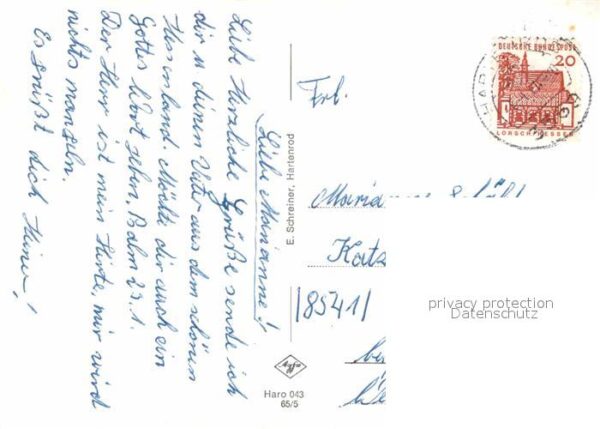 Liebe Marianne!
Liebe herzliche Grüße sende ich
dir u deinen Vater aus dem schönen
Hessenland. Möchte dir auch ein
Gottes Wort geben, Psalm 23.1.
Der Herr ist mein Hirte, mir wird
nichts mangeln.
Es grüßt dich
E. Schreiner, Hartenrod
Agfa
Haro 043
65/5
DEUTSCHE BUNDESPOST
20
LORSCH/HESSEN
Frl.
Katz
/8541/
privacy protection
Datenschutz